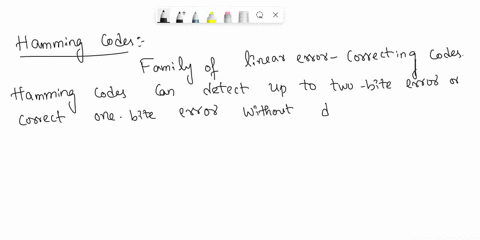 Hamming Codes:-
Family of linear error-Correcting Codes.
Hamming Codes Can detect up to two-bite error or
Correct one-bite error without d